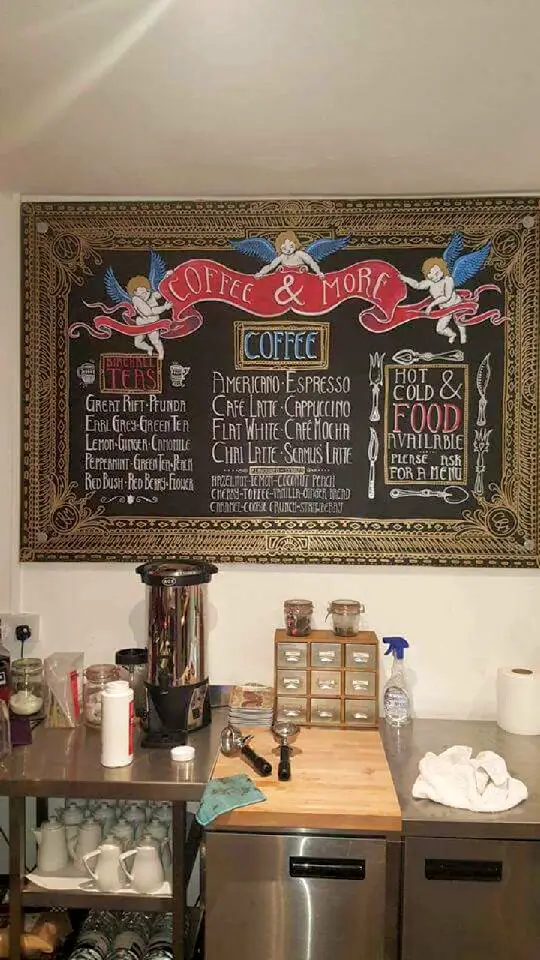 COFFEE & MORE
BIRCHALL
TEAS
GREAT RIFT · PFUNDA
EARL GREY · GREEN TEA
LEMON · GINGER · CAMOMILE
PEPPERMINT · GREEN TEA · PEACH
RED BUSH · RED BERRY · FLOWER
COFFEE
AMERICANO · ESPRESSO
CAFÉ LATTE · CAPPUCCINO
FLAT WHITE · CAFÉ MOCHA
CHAI LATTE · SEAMUS LATTE
FLAVOURED SYRUPS
HAZELNUT · LEMON · COCONUT PEACH
CHERRY · TOFFEE · VANILLA · GINGER BREAD
CARAMEL · COOKIE CRUNCH · STRAWBERRY
HOT
COLD &
FOOD
AVAILABLE
PLEASE ASK
FOR A MENU